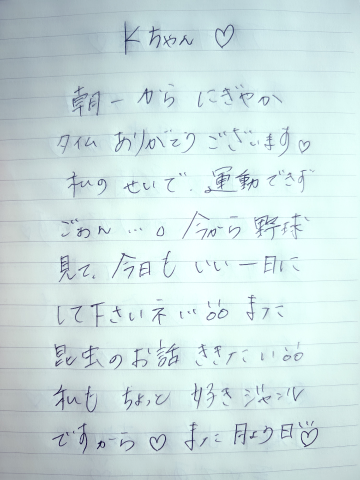 Kちゃん♡
朝一から にぎやか
タイム ありがとうございます♡
私の せいで、運動できず
ごめん…。今から 野球
見て、今日も いい一日に
して下さいネ また
昆虫のお話 ききたい
私も ちょっと 好き ジャンル
ですから♡ また 月よう日♡